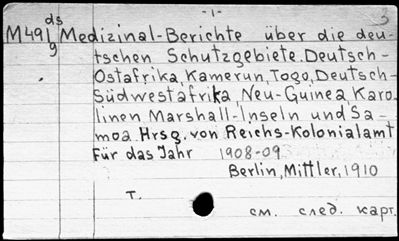 -1-
3
ds
M491 Medizinal-Berichte über die deu-
g
tschen Schutzgebiete. Deutsch-
Ostafrika, Kamerun, Togo, Deutsch-
Südwestafrika, Neu-Guinea, Karo-
linen Marshall-Inseln und Sa-
moa. Hrsg. von Reichs-Kolonialamt
Für das Jahr 1908-09
Berlin, Mittler, 1910
T.
см. след. карт.